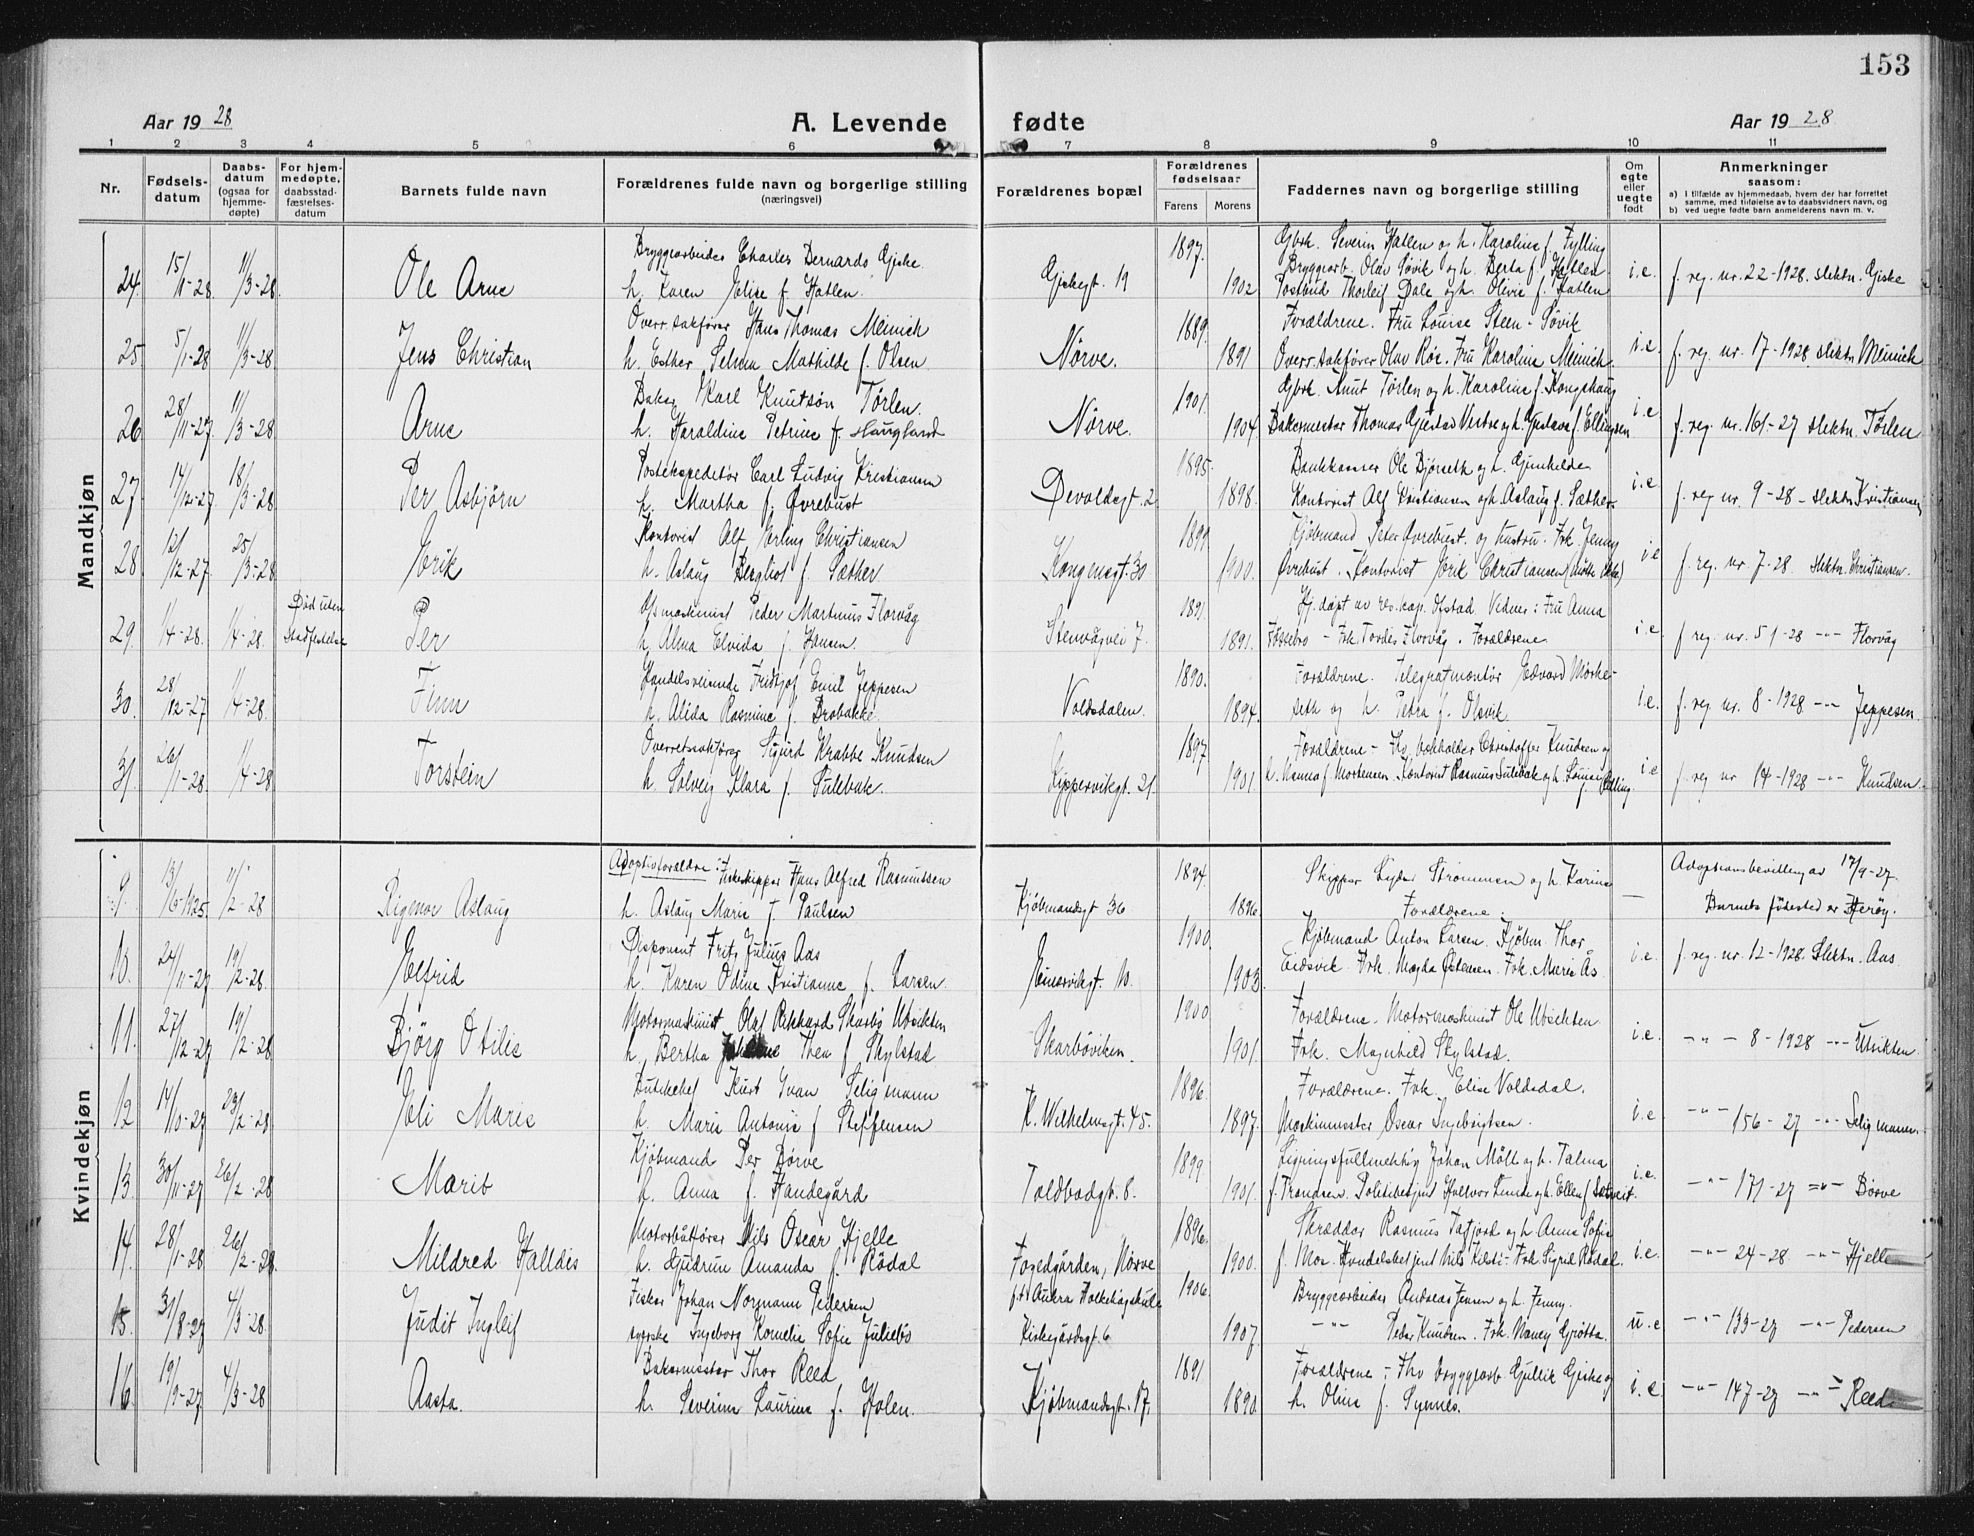 153
Aar 1928
A. Levende fødte
Aar 1928
1 2 3 4 5 6 7 8 9 10 11
Nr.
Fødsels-
datum
Daabs-
datum
(ogsaa for
hjemme-
døpte)
For hjem-
medøpte,
daabsstad-
fæstelses-
datum
Barnets fulde navn
Forældrenes fulde navn og borgerlige stilling
(næringsvei)
Forældrenes bopæl
Forældrenes
fødselsaar
Farens
Morens
Faddernes navn og borgerlige stilling
Om
egte
eller
uegte
født
Anmerkninger
saasom:
a) I tilfælde av hjemmedaab, hvem der har forrettet
samme, med tilføielse av to daabsvidners navn, og
b) ved uegte fødte barn anmelderens navn m. v.
Mandkjøn
24. 15/11-28. 11/3-28 Ole Arne
Bryggearbeider Charles Bernards Giske
h. Karen Elise f. Hatlen.
Giskegt. 19 1897. 1902
Gbrk. Severin Hatlen og h. Karoline f. Fylling
Bryggearb. Olav Søvik og h. Berta f. Hatlen
Postbud Thorleif Dale og h. Olivie f. Hatlen
i.e. f. reg. nr. 22-1928. slektn. Giske
25 5/1-28 11/3-28 Jens Christian
Overr.sakfører Hans Thomas Meinich
h. Esther Selma Mathilde f. Olsen
Nørve. 1889. 1891
Forældrene. Fru Louise Steen-Søvik
Overr.sakfører Olav Røe. Fru Karoline Meinich.
i.e. f. reg. nr. 17-1928 slektn Meinich
26 28/11-27 11/3-28 Arne
Baker Karl Knutsøn Tørlen.
h. Haraldine Petrine f. Haugland
Nørve. 1901. 1904
Gbrk. Knut Tørlen og h. Karoline f. Kongshaug
Bakermester Thomas Gjestad Vestre og h. Gustava f. Ellingsen
i.e f. reg. nr. 161-27 slektn. Tørlen
27 14/12-27 18/3-28 Per Asbjørn
Postekspeditør Carl Ludvig Kristiansen
h. Martha f. Øvrebust
Devoldsgt. 2. 1895. 1898.
Bankkasser Ole Bjørseth og h. Gunhilde
Kontorist Alf Kristiansen og h. Aslaug f. Sæther
i.e f. reg nr. 9-28 - slektn Kristiansen
28. 12/12-27. 25/3-28 Erik
Kontorist Alf Erling Christiansen
h. Aslaug Bergliot f. Sæther
Kongensgt 30 1899 1900.
Kjøbmand Peter Øvrebust. og hustru. Frk Jenny
Øvrebust. Kontorist Erik Christiansen
i.e f. reg. nr 7-28 slektn. Christiansen.
29. 1/4-28. 1/4-28 Død uten
Stadfestelse Per
Peder Martinus Florvåg
h. Alma Elvida f. Hansen.
Stenvågvei 7. 1891. 1891.
Hj. døpt av res. kap. Ofstad. Vidner: Fru Anna
Fossebro - Frk Tordis Florvåg. Forældrene
i.e. f reg. nr. 51-28 -"- Florvåg
30. 28/12-27 1/4-28. Finn
Handelsreisende Fridtjof Emil Jeppesen
h. Alida Rasmine f. Brobakke.
Voldsdalen. 1890. 1894.
Forældrene. Telegrafmontør Edvard Morke-
seth og h. Petra f. Olsvik.
i.e. f. reg nr. 8-1928 -"- Jeppesen.
31. 26/1-28. 1/4-28 Torstein
Overretssakfører Sigurd Krabbe Knudsen
h. Solveig Klara f. Sulebak.
Kippervikgt. 21. 1897 1901.
Forældrene - Fhv. bokholder Christoffer Knudsen og
h. Nanna f. Mortensen. Kontorist Rasmus Sulebak og h.
i.e f. reg nr 14-1928 -"- Knudsen.
Kvindekjøn
9. 13/6-1925. 11/2-28 Rigmor Aslaug
Adoptivforældre: Fiskeskipper Hans Alfred Rasmussen
h. Aslaug Marie f. Paulsen
Kjøbmandsgt 36 1894. 1896.
Skipper Lyder Strømmen og h. Karine
Forældrene.
— Adoptionsbevilling av 17/9-27.
Barnets fødested er Herøy.
10. 24/11-27 19/2-28. Elfrid
Disponent Fritz Julius Aas
h. Karen Odine Kristianne f. Larsen.
10. 1900 1903.
Kjøbmand Anton Larsen. Kjøbm. Thor
Eidsvik. Frk. Magda Ottesen. Frk. Marie Ås
i.e. f. reg. nr. 12-1928. Slektn. Aas
11. 27/12-27 19/2-28 Bjørg Otilie
Motormaskinist Olaf Rikhard Skarbø Utvikten
h. Bertha Thea f Skylstad
Skarbøviken. 1900 1901.
Forældrene. Motormaskinist Ole Utvikten
Frk. Magnhild Skylstad.
i.e. -"- 8-1928 -"- Utvikten.
12 14/10-27 23/2-28 Eli Marie
Butikchef Kurt Ivan Seligmann
h. Marie Antonie f Steffensen
K. Wilhelmsgt. 45. 1896. 1897.
Forældrene. Frk. Elise Voldsdal.
Maskinmester Oscar Ingebrigtsen.
i.e -"- 156-27 -"- Seligmann.
13. 30/11-27 26/2-28 Marit
Kjøbmand Per Børve
h. Anna f. Handegård
Toldbodgt. 8. 1899. 1901.
Ligningsfullmektig Johan Møll og h. Talma
f. Trondsen. Politibetjent Halvor Lunde og h. Ellen f
i.e. -"- 171-27 -"- Børve
14. 28/1-28 26/2-28 Mildred Halldis
Motorbåtfører Nils Oscar Hjelle
h. Gudrun Amanda f. Rødal
Fogedgården, Nørve 1896. 1900.
Skrædder Rasmus Tafjord og h Anna Sofie
f. Moe. Handelsbetjent Nils Kilsti - Frk Sigrid Rødal.
i.e. -"- 24-28 -"- Hjelle
15. 31/8-27 4/3-28. Judit Ingleif
Fisker Johan Normann Pedersen
syerske Ingeborg Kornelie Sofie Juliebø
p.t. Aukra Folkehøgskule
Kirkegårdsgt. 6 1906. 1907.
Bryggearbeider Andreas Jensen og h. Jenny.
-"- Peder Knudsen. Frk. Nancy Grøtta.
u.e -"- 133-27 -"- Pedersen
16. 19/9-27 4/3-28 Aasta.
Bakermester Thor Reed
h. Severine Laurine f. Holen.
Kjøbmandsgt. 17. 1891 1890.
Forældrene - Fhv bryggearb Gullik Giske og
h. Oline f. Synnes.
i.e -"- 147-27 -"- Reed.